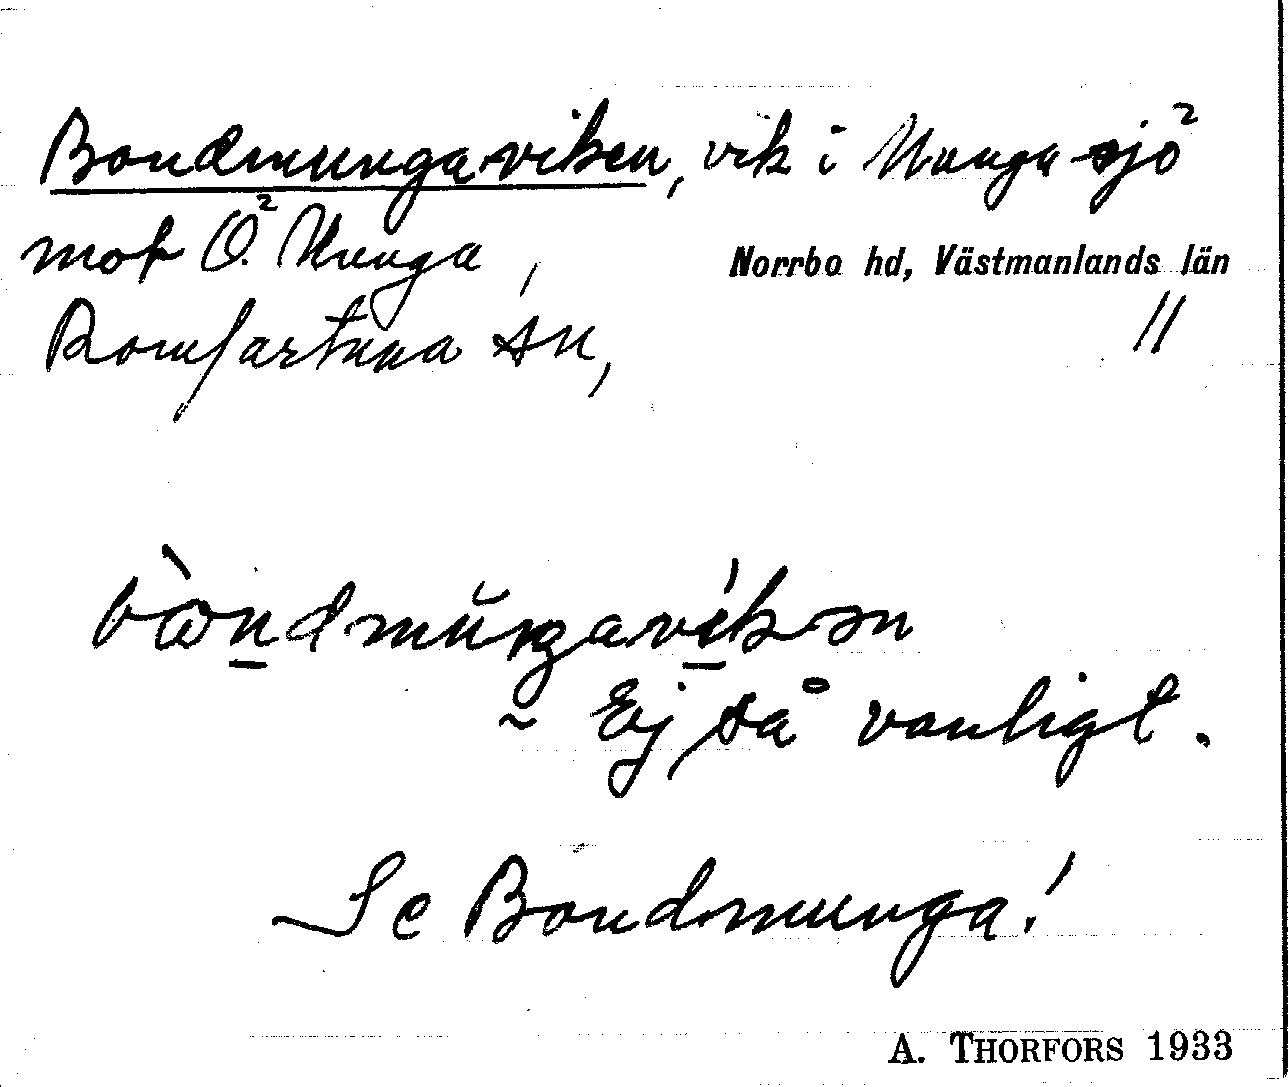 Bondmungaviken, vik i Munga sjö
mot Ö. Munga,
Norrbo hd, Västmanlands län
Romfartuna sn,
Ej så vanligt.
Se Bondmunga!
A. THORFORS 1933